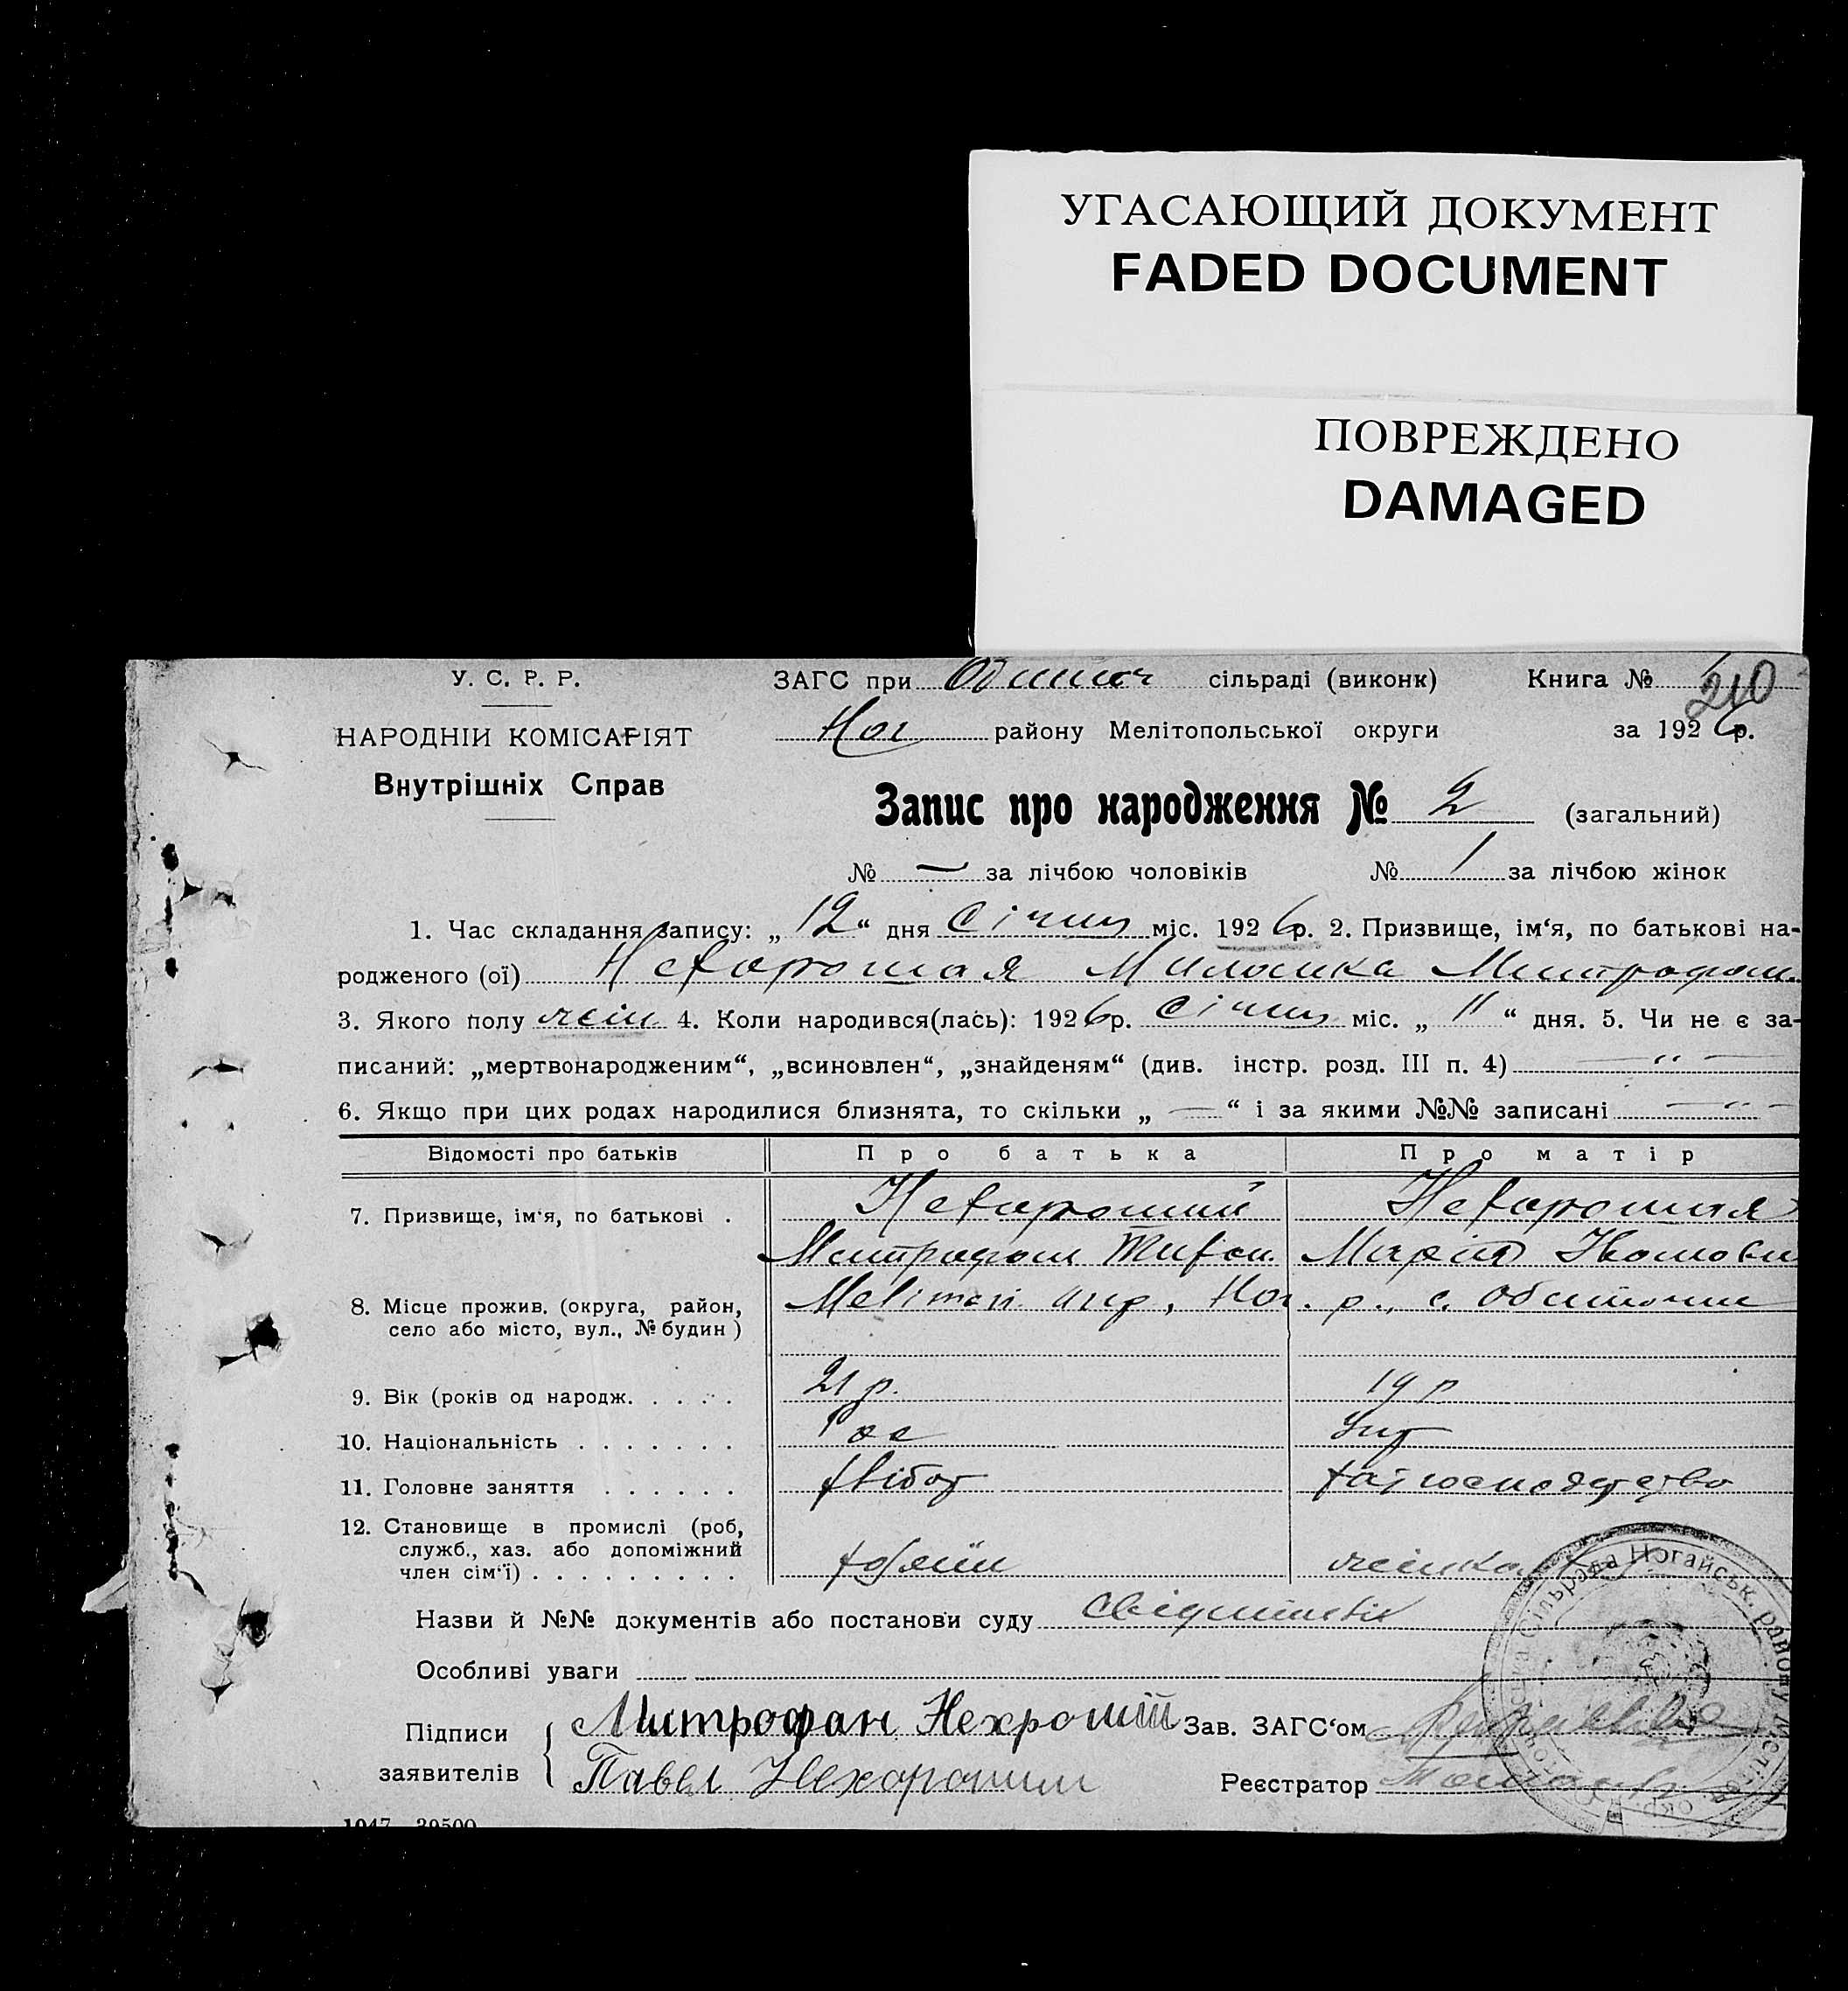 УГАСАЮЩИЙ ДОКУМЕНТ
FADED DOCUMENT
ПОВРЕЖДЕНО
DAMAGED
У. С. Р. Р.
НАРОДНІЙ КОМІСАРІЯТ
Внутрішніх Справ
ЗАГС при сільраді (виконк) Книга № 210
Ног району Мелітопольської округи за 1926 р.
Запис про народження № 2 (загальний)
№ — за лічбою чоловіків № 1 за лічбою жінок
1. Час складання запису: „12“ дня Січня міс. 1926 р. 2. Призвище, ім‘я, по батькові на-
родженого (ої) Нехорошая Митрофан.
3. Якого полу жін 4. Коли народився(лась): 1926 р. Січня міс. „11“ дня. 5. Чи не є за-
писаний: „мертвонародженим“, „всиновлен“, „знайденям“ (див. інстр. розд. III п. 4) — „ —
6. Якщо при цих родах народилися близнята, то скільки „—“ і за якими №№ записані — „ —
Відомості про батьків Про батька Про матір
7. Призвище, ім‘я, по батькові . Нехороший Нехорошая
Митрофан Марія
8. Місце прожив. (округа, район, село або місто, вул., № будин) Меліт окр, Ног. р., с. Обиточне
9. Вік (років од народж. . . . . 21 р. 19 р
10. Національність . . . . . . . Рос Укр
11. Головне заняття . . . . . . хлібор хатгосподарство
12. Становище в промислі (роб,
служб., хаз. або допоміжний
член сім‘ї) . . . . . . . . . хозяїн жінка
Назви й №№ документів або постанови суду
Особливі уваги
Підписи заявителів { Митрофан Нехроший Зав. ЗАГС‘ом
Павел Нехороший Реєстратор
Сільрада Ногайськ. району
1047—39500